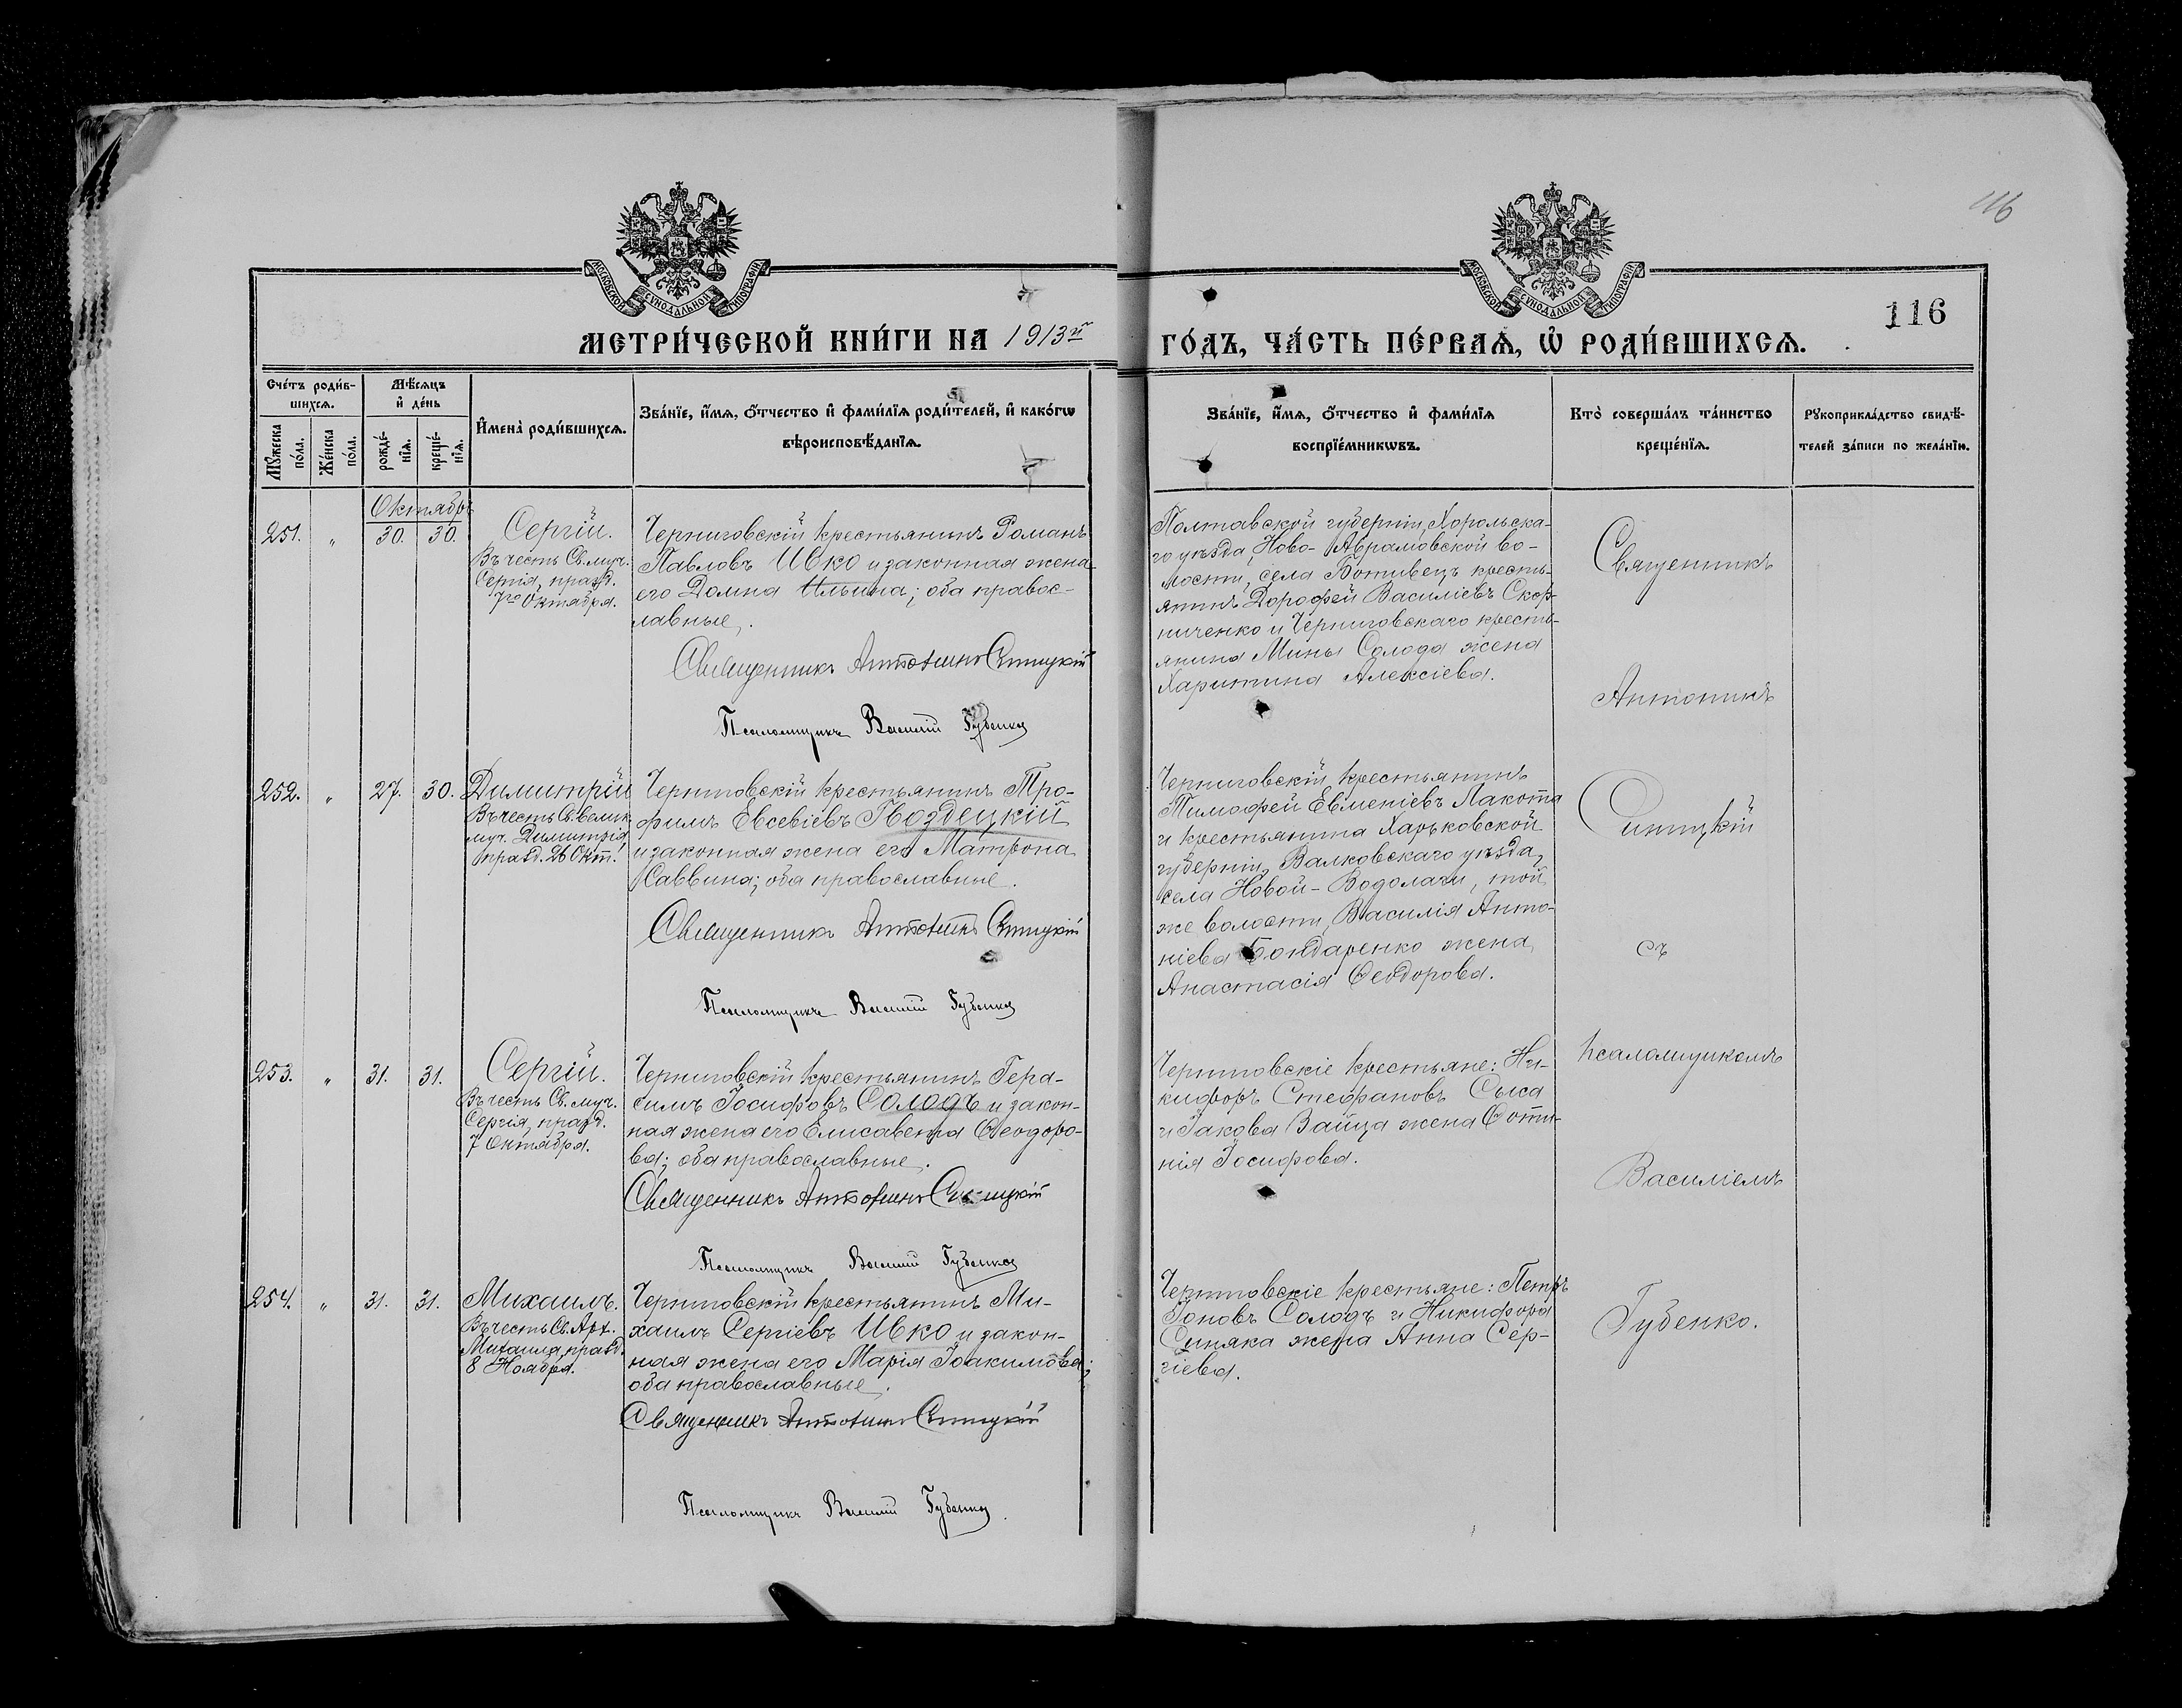 116
116
МОСКОВСКОЙ СѴНОДАЛЬНОЙ ТИПОГРАФІИ
МОСКОВСКОЙ СѴНОДАЛЬНОЙ ТИПОГРАФІИ
МЕТРИ́ЧЕСКОЙ КНИ́ГИ НА 1913й ГО́ДЪ, ЧА́СТЬ ПЕ́РВАѦ, Ѡ҆ РОДИ́ВШИХСѦ.
Сче́тъ роди́в-
шихсѧ.
Мꙋ́жеска по́ла.
Же́нска по́ла.
Мѣ́сѧцъ
и҆ де́нь
рожде́-
нїѧ.
креще́-
нїѧ.
И҆мена̀ роди́вшихсѧ.
Зва́нїе, и҆́мѧ, о҆́тчество и҆ фами́лїѧ роди́телей, и҆ како́гѡ
вѣроисповѣ́данїѧ.
Зва́нїе, и҆́мѧ, о҆́тчество и҆ фами́лїѧ
воспрїе́мникѡвъ.
Кто̀ соверша́лъ та́инство
креще́нїѧ.
Рꙋкоприкла́дство свидѣ́-
телей за́писи по жела́нїю.
Октябрь
251. " 30. 30.
Сергій.
Въ честь Св. муч.
Сергія, празд.
7го Октября.
Черниговскій крестьянинъ Романъ
Павловъ Ивко и законная жена
его Домна Ильина; оба правос-
лавные.
Священникъ Антонинъ Синицкій
Псаломщикъ Василій Губенко
Полтавской губерніи, Хорольска-
го уѣзда, Ново-Аврамовской во-
лости, села Ботивецъ кресть-
янинъ Дорофей Василіевъ Скор-
ниченко и Черниговскаго кресть-
янина Мины Солода жена
Харитина Алексіева.
252. " 27. 30.
Димитрій
Въ честь Св. велик.
муч. Димитрія
празд. 26 Окт.
Черниговскій крестьянинъ Тро-
фимъ Евсевіевъ Гвоздецкій
и законная жена его Матрона
Саввина; оба православные.
Священникъ Антонинъ Синицкій
Псаломщикъ Василій Губенко
Черниговскій крестьянинъ
Тимофей Евменіевъ Лакота
и крестьянина Харьковской
губерніи, Валковскаго уѣзда,
села Новой-Водолаги, той
же волости, Василія Анто-
ніева Бондаренко жена
Анастасія Ѳеодорова.
253. " 31. 31.
Сергій.
Въ честь Св. муч.
Сергія, празд.
7 Октября.
Черниговскій крестьянинъ Гера-
симъ Іосифовъ Солодъ и закон-
ная жена его Елисавета Ѳеодоро-
ва; оба православные.
Священникъ Антонинъ Синицкій
Псаломщикъ Василій Губенко
Черниговскіе крестьяне: Ни-
кифоръ Стефановъ Сыса
и Іакова Зайца жена Фоти-
нія Іосифова.
254. " 31. 31.
Михаилъ.
Въ честь Св. Арх.
Михаила, празд.
8 Ноября.
Черниговскій крестьянинъ Ми-
хаилъ Сергіевъ Ивко и закон-
ная жена его Марія Іоакимова;
оба православные.
Священникъ Антонинъ Синицкій
Псаломщикъ Василій Губенко
Черниговскіе крестьяне: Петръ
Іоновъ Солодъ и Никифора
Синяка жена Анна Сер-
гіева.
Священникъ
Антонинъ
Синицкій
съ
псаломщикомъ
Василіемъ
Губенко.